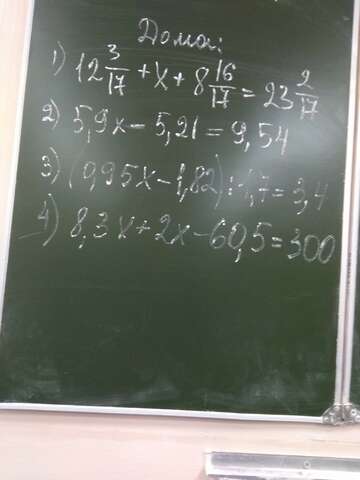 Дома:
1) 12 3/17 + x + 8 16/17 = 23 2/17
2) 5,9x - 5,21 = 9,54
3) (0,95x - 1,82) : 1,7 = 3,4
4) 8,3x + 2x - 60,5 = 300